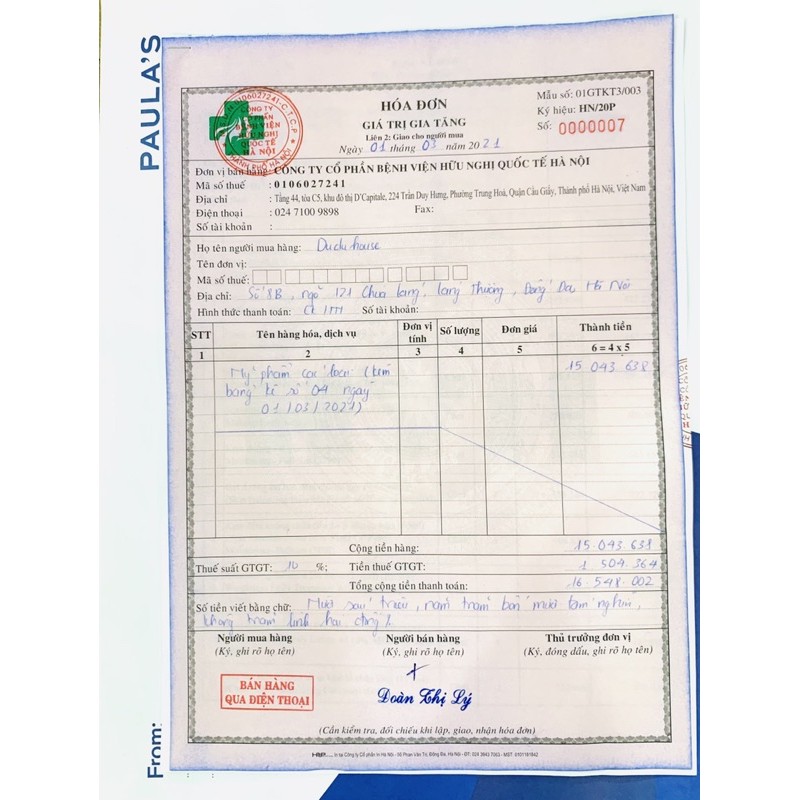 PAULA'S
From:
HÓA ĐƠN
GIÁ TRỊ GIA TĂNG
Liên 2: Giao cho người mua
Ngày 01 tháng 03 năm 2021
Mẫu số: 01GTKT3/003
Ký hiệu: HN/20P
Số: 0000007
0106027241-C.T.C.P
CÔNG TY
CỔ PHẦN
BỆNH VIỆN
HỮU NGHỊ
QUỐC TẾ
HÀ NỘI
THÀNH PHỐ HÀ NỘI
Đơn vị bán hàng: CÔNG TY CỔ PHẦN BỆNH VIỆN HỮU NGHỊ QUỐC TẾ HÀ NỘI
Mã số thuế : 0106027241
Địa chỉ : Tầng 44, tòa C5, khu đô thị D'Capitale, 224 Trần Duy Hưng, Phường Trung Hoà, Quận Cầu Giấy, Thành phố Hà Nội, Việt Nam
Điện thoại : 024 7100 9898 Fax:
Số tài khoản :
Họ tên người mua hàng: Duduhouse
Tên đơn vị:
Mã số thuế:
Địa chỉ: Số 8B, ngõ 121 Chùa Láng, Láng Thượng, Đống Đa Hà Nội
Hình thức thanh toán: CK/TM Số tài khoản:
STT Tên hàng hóa, dịch vụ Đơn vị tính Số lượng Đơn giá Thành tiền
1 2 3 4 5 6 = 4 x 5
Mỹ phẩm các loại (kèm 15.043.638
bảng kê số 04 ngày
01/03/2021)
Cộng tiền hàng: 15.043.638
Thuế suất GTGT: 10 %; Tiền thuế GTGT: 1.504.364
Tổng cộng tiền thanh toán: 16.548.002
Số tiền viết bằng chữ: Mười sáu triệu, năm trăm bốn mươi tám nghìn,
không trăm linh hai đồng
Người mua hàng Người bán hàng Thủ trưởng đơn vị
(Ký, ghi rõ họ tên) (Ký, ghi rõ họ tên) (Ký, đóng dấu, ghi rõ họ tên)
BÁN HÀNG
QUA ĐIỆN THOẠI
Đoàn Thị Lý
(Cần kiểm tra, đối chiếu khi lập, giao, nhận hóa đơn)